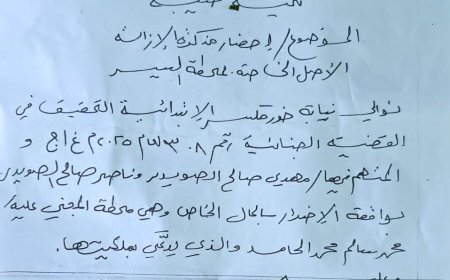 تحية طيبة
الموضوع/ إحضار مذكرة الإزالة
الأصل الخاصة بمحطة
توالي نيابة خور مكسر الابتدائية التحقيق في
القضية الجنائية رقم ٣٠٨ لعام ٢٠٢٥م غ اج و
المتهم فيها/ مهدي صالح الصويدر وناصر صالح الصويدر
بواقعة الإضرار بالمال الخاص وهي محطة المجني عليه/
محمد سالم محمد الحامد والذي يدعي بملكيتها.